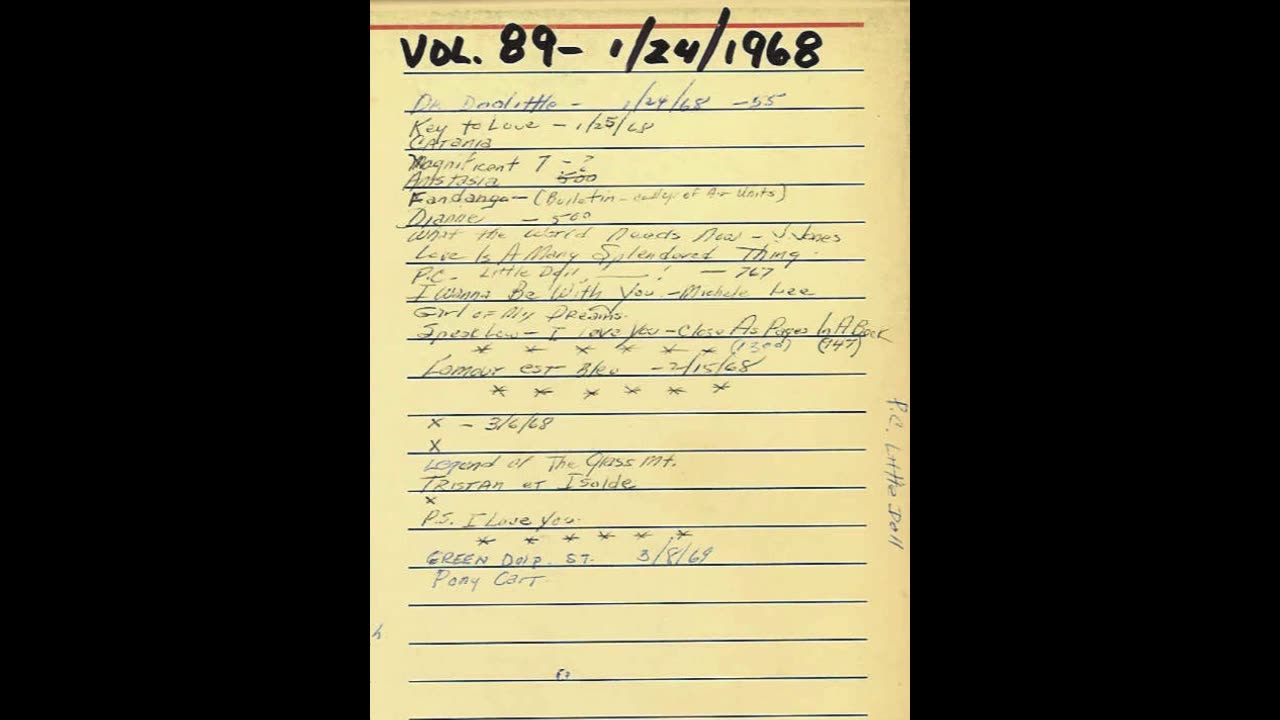 VOL. 89- 1/24/1968
DR Doolittle - 1/24/68 -55
Key to Love - 1/25/68
CATania
Magnificent 7 - ?
Anistasia 500
Fandango - (Bulletin - of Air Units)
Dianne - 500
What the World Needs Now - J. Jones
Love Is A Many Splendored Thing.
P.C. - Little Doll - 767
I Wanna Be With You - Michele Lee
Girl of My Dreams.
Speak Low - I Love You - Close As Pages In A Book
* * * * * * (1300) (147)
L'amour est Bleu - 2/15/68
* * * * * *
x - 3/6/68
x
Legend of The Glass Mt.
TRISTAN et Isolde
x
P.S. I Love You.
* * * * * *
GREEN Dolp. ST. 3/8/69
Pony Cart
P.C. Little Doll